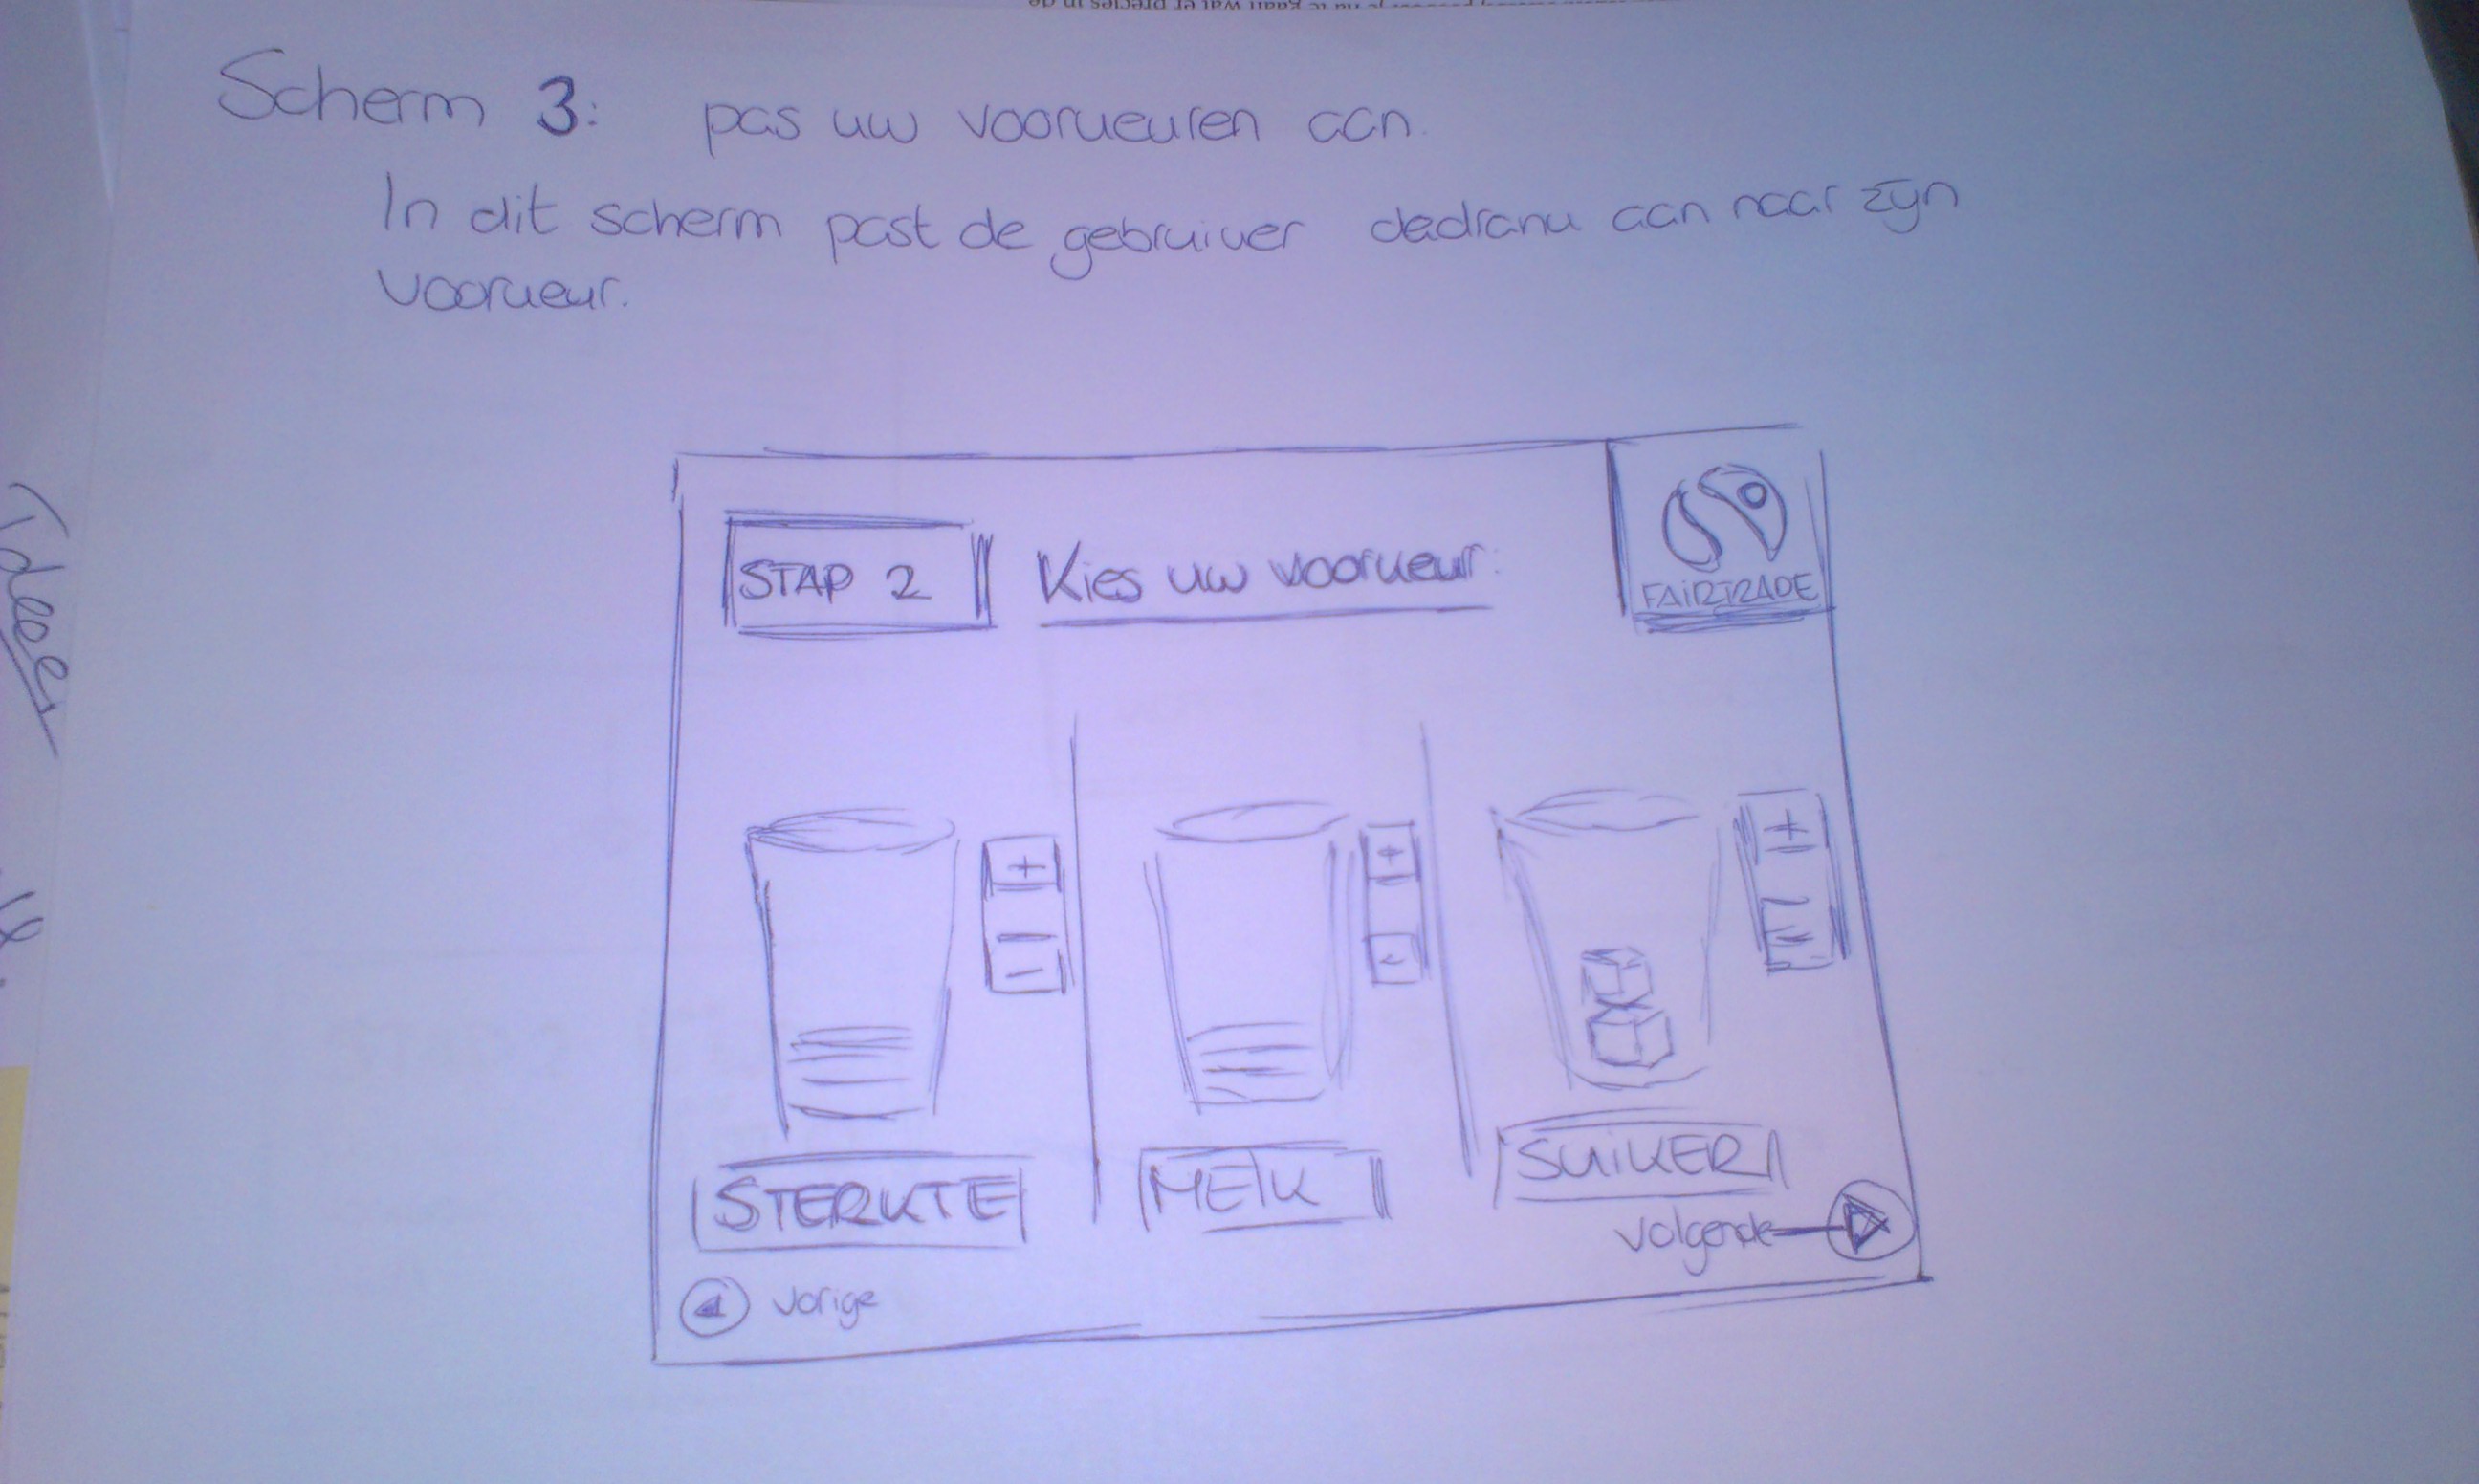 Scherm 3: pas uw voorkeuren aan.
In dit scherm past de gebruiker de drank aan naar zijn
voorkeur.
STAP 2 Kies uw voorkeur:
FAIRTRADE
+ + +
- - -
STERKTE MELK SUIKER
volgende
vorige
Ideeen